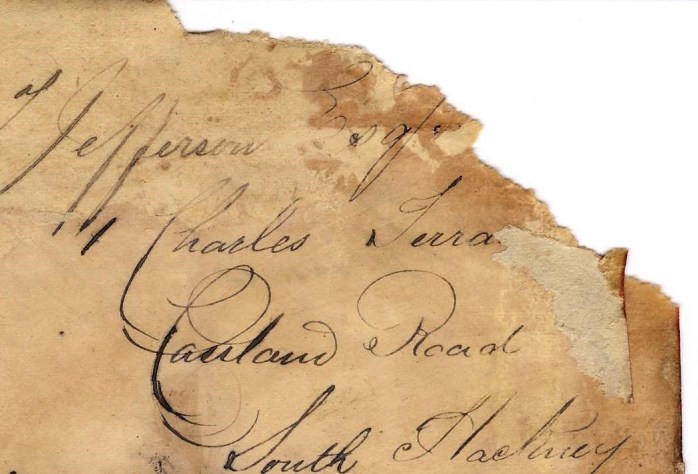 Jefferson Esqr
11 Charles Terra
Cassland Road
South Hackney